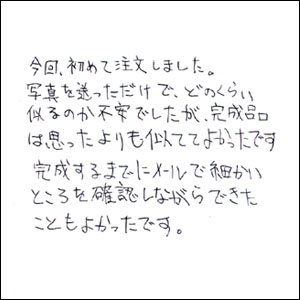 今回、初めて注文しました。
写真を送っただけで、どのくらい
似るのか不安でしたが、完成品
は思ったよりも似ててよかったです
完成するまでにメールで細かい
ところを確認しながらできた
こともよかったです。